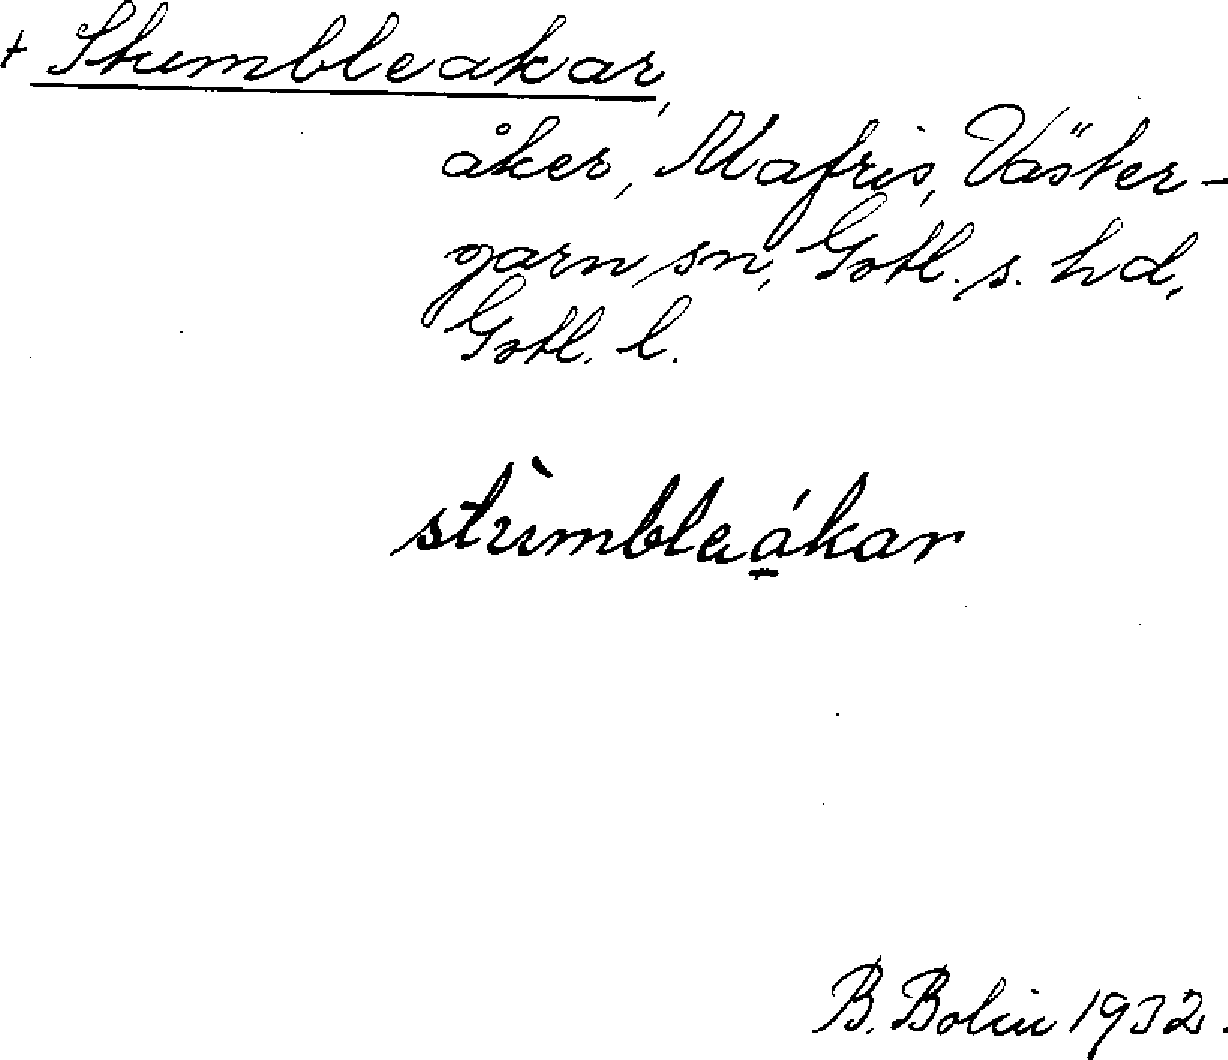 + Stumbleakar,
åker, Mafris, Väster-
garn sn, Gotl. s. hd,
Gotl. l.
stùmbleákar
B. Bolin 1932.